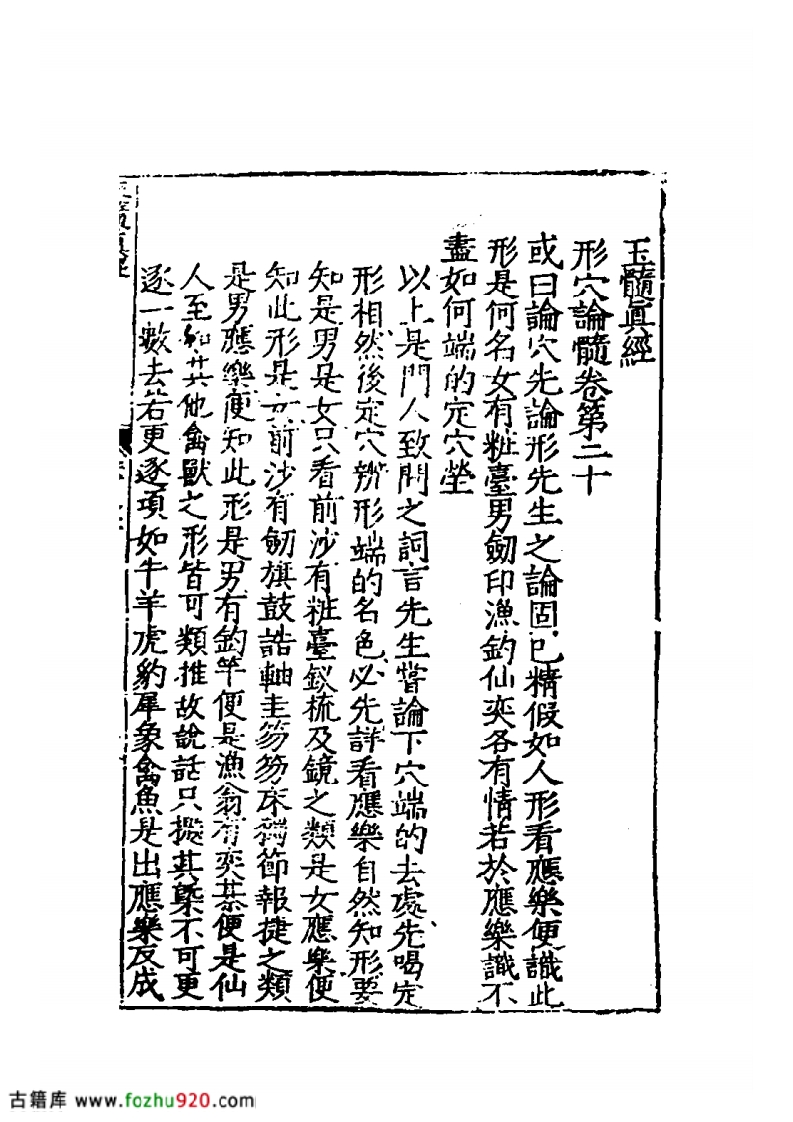 玉髓眞經
形穴論髓卷第二十
或曰論穴先論形先生之論固已精假如人形看應樂便識此
形是何名女有粧臺男劒印漁釣仙奕各有情若於應樂識不
盡如何端的定穴塋
以上是門人致問之詞言先生嘗論下穴端的去處先喝定
形相然後定穴辨形端的名色必先詳看應樂自然知形要
知是男是女只看前沙有粧臺釵梳及鏡之類是女應樂便
知此形是女前沙有劒旗鼓誥軸圭笏笏床節報捷之類
是男應樂便知此形是男有釣竿便是漁翁有奕棊便是仙
人至如其他禽獸之形皆可類推故說話只擬其槩不可更
逐一數去若更逐項如牛羊虎豹犀象禽魚是出應樂反成
古籍库 www.fozhu920.com